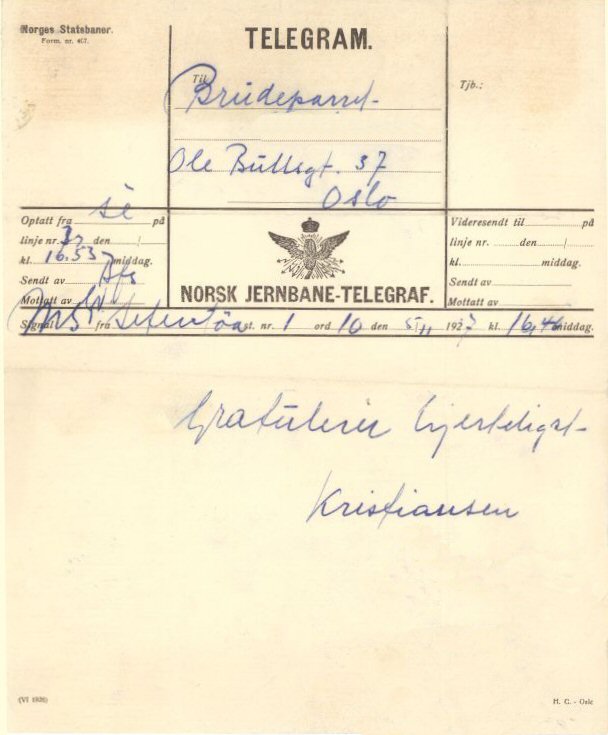 Norges Statsbaner.
Form. nr. 407.
TELEGRAM.
Til
Brudeparret
Ole Bullsgt. 37
Oslo
Tjb.:
Optatt fra se på
linje nr. 32 den /
kl. 16.53 middag.
Sendt av
Mottatt av
NORSK JERNBANE-TELEGRAF.
Videresendt til på
linje nr. den /
kl. middag.
Sendt av
Mottatt av
Signal fra st. nr. 1 ord 10 den 5/11 1927 kl. 16,46 middag.
Gratulerer hjerteligst
Kristiansen
(VI 1926)
H. C. - Oslo